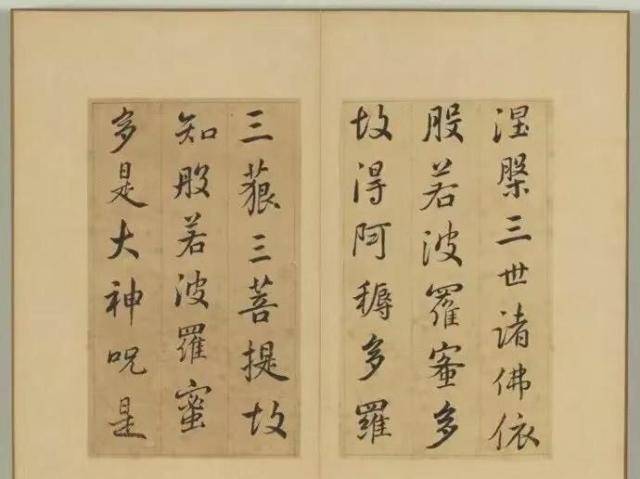 涅槃三世诸佛依
般若波羅蜜多
故得阿耨多羅
三藐三菩提故
知般若波羅蜜
多是大神呪是